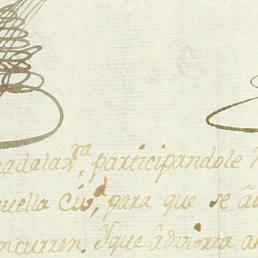 adalax.ra, participandole
uella Ciu.d, para que se
ncurren. Yque advierta a